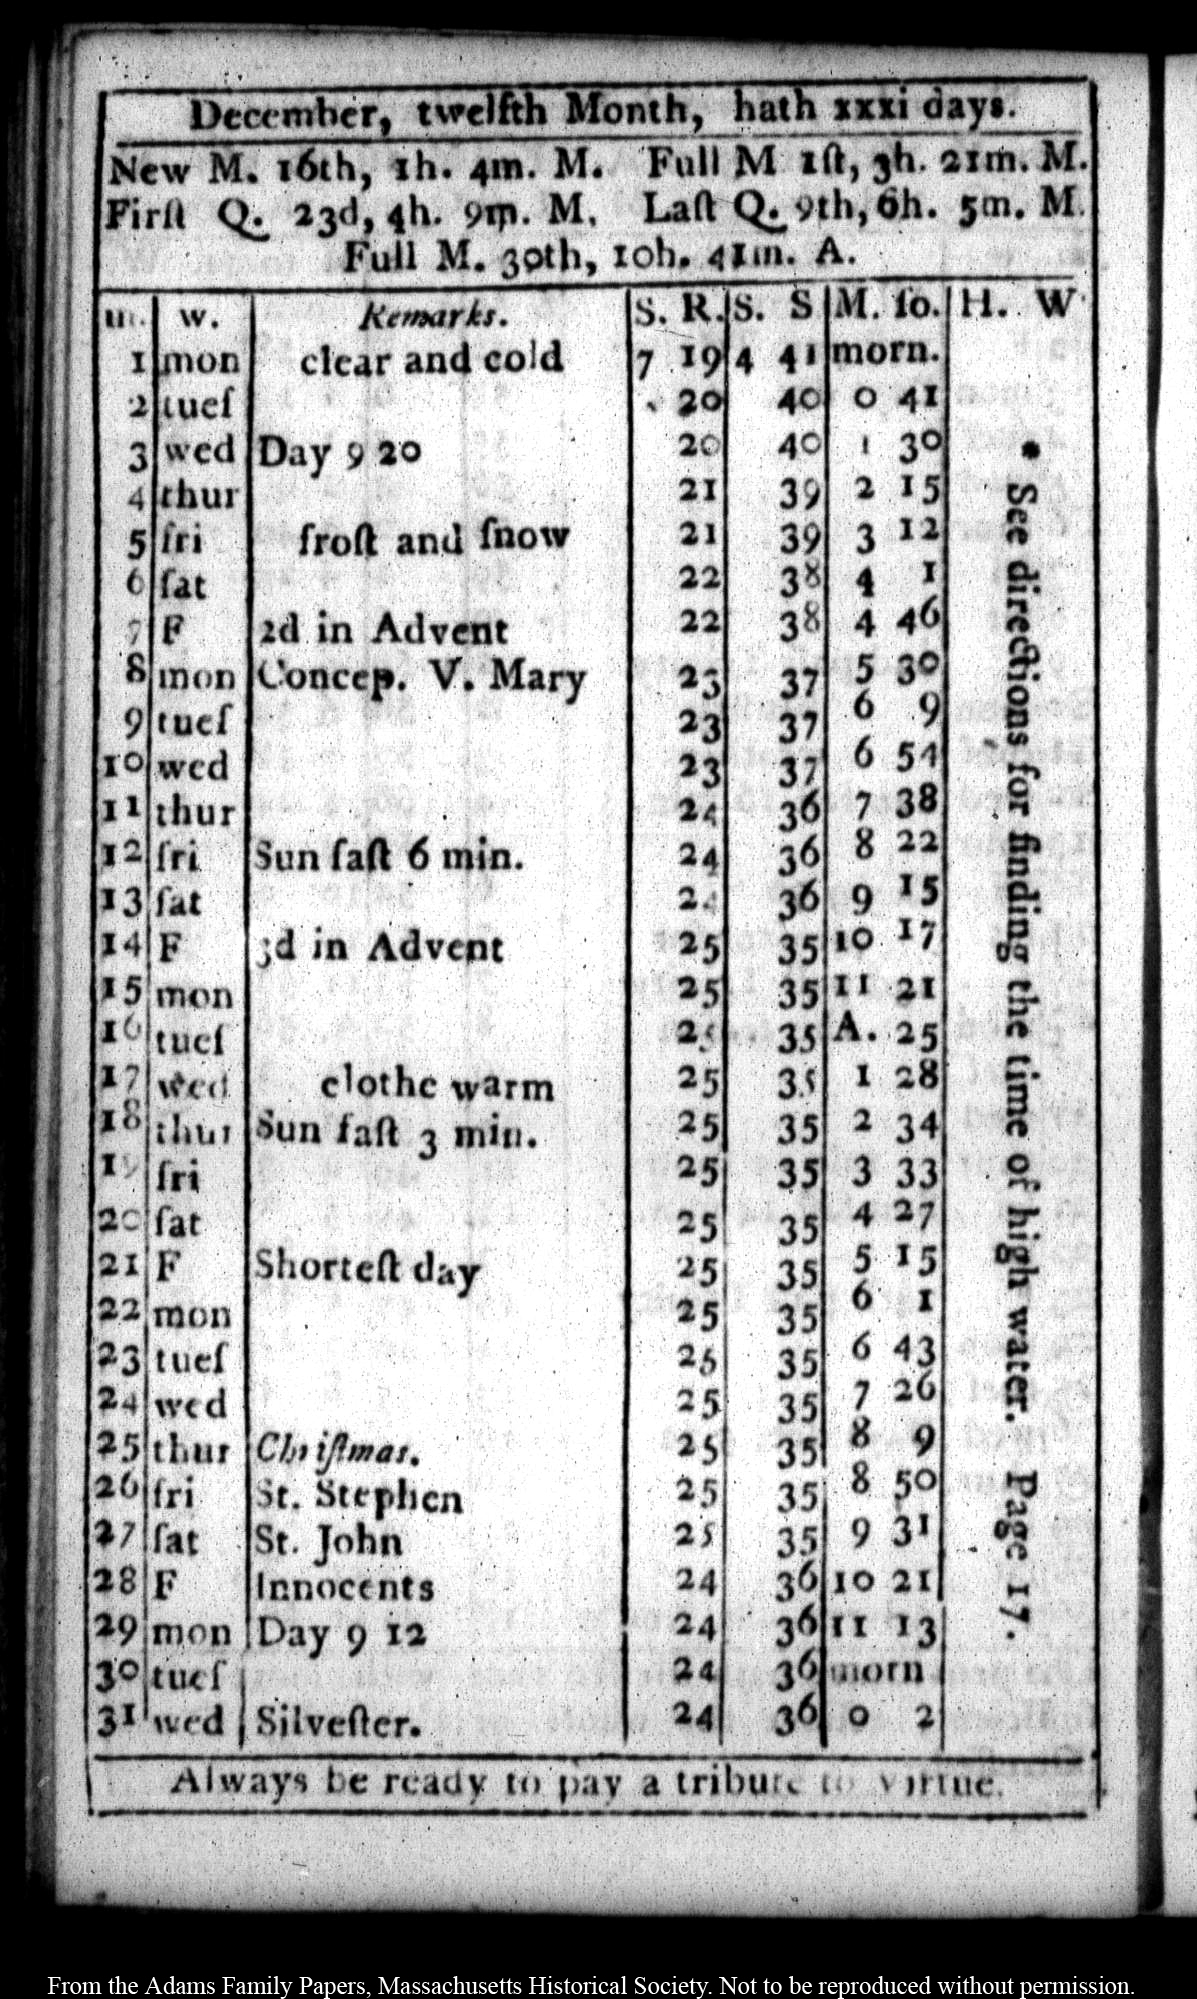 December, twelfth Month, hath xxxi days.
New M. 16th, 1h. 4m. M. Full M 1ſt, 3h. 21m. M.
Firſt Q. 23d, 4h. 9m. M. Laſt Q. 9th, 6h. 5m. M.
Full M. 30th, 10h. 41m. A.
m. w. Remarks. S. R. S. S M. ſo. H. W
1 mon clear and cold 7 19 4 41 morn.
2 tueſ 20 40 0 41
3 wed Day 9 20 20 40 1 30
4 thur 21 39 2 15
5 fri froſt and ſnow 21 39 3 12
6 ſat 22 38 4 1
7 F 2d in Advent 22 38 4 46
8 mon Concep. V. Mary 23 37 5 30
9 tueſ 23 37 6 9
10 wed 23 37 6 54
11 thur 24 36 7 38
12 fri Sun faſt 6 min. 24 36 8 22
13 ſat 24 36 9 15
14 F 3d in Advent 25 35 10 17
15 mon 25 35 11 21
16 tueſ 25 35 A. 25
17 wed clothe warm 25 35 1 28
18 thur Sun faſt 3 min. 25 35 2 34
19 fri 25 35 3 33
20 ſat 25 35 4 27
21 F Shorteſt day 25 35 5 15
22 mon 25 35 6 1
23 tueſ 25 35 6 43
24 wed 25 35 7 26
25 thur Chriſtmas. 25 35 8 9
26 fri St. Stephen 25 35 8 50
27 ſat St. John 25 35 9 31
28 F Innocents 24 36 10 21
29 mon Day 9 12 24 36 11 13
30 tueſ 24 36 morn
31 wed Silveſter. 24 36 0 2
* See directions for finding the time of high water. Page 17.
Always be ready to pay a tribute to virtue.
From the Adams Family Papers, Massachusetts Historical Society. Not to be reproduced without permission.